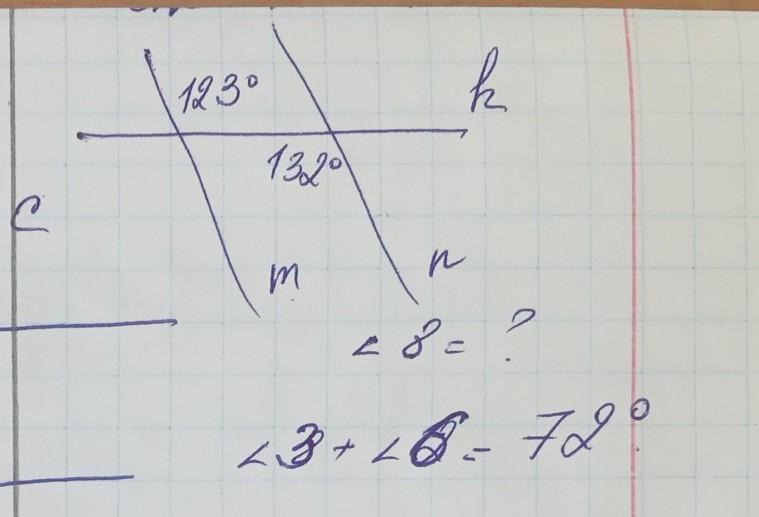 123°
k
132°
C
m
n
∠ 8 = ?
∠3 + ∠6 = 72°